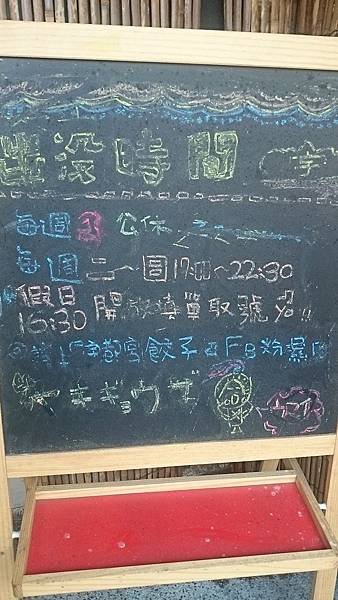 出沒時間
每週1公休
每週二~日17:00~22:30
假日16:30開放填單取號 Yo!!
宇都宮餃子 FB粉
ギョウザ